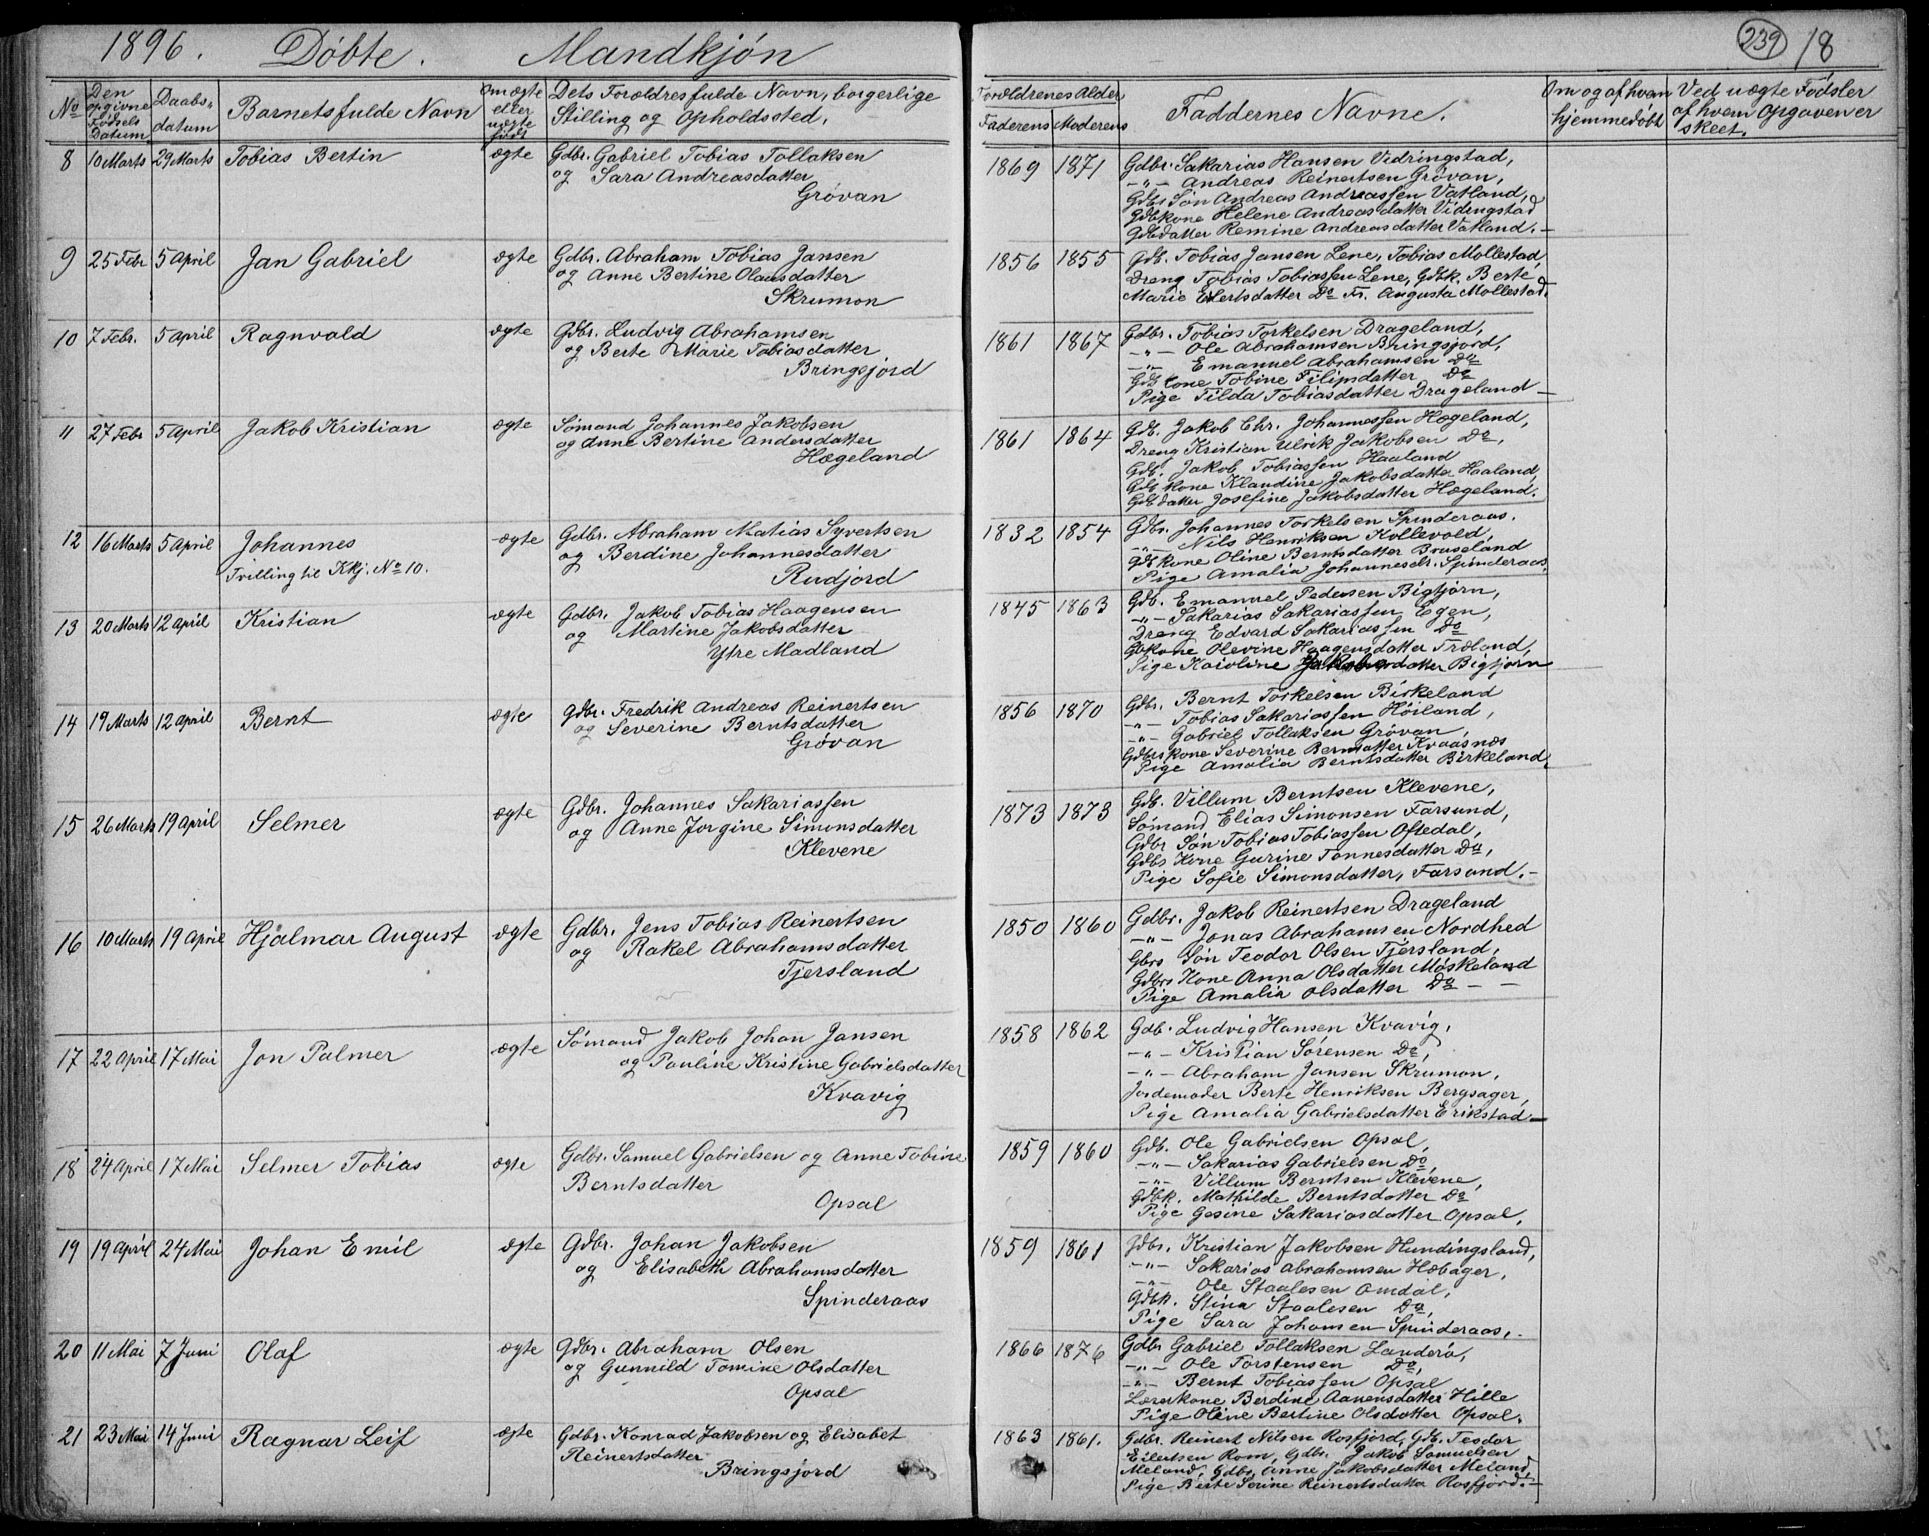 1896. Döbte. Mandkjön
239 18
No Den opgivne Fødsels Datum Daabsdatum Barnets fulde Navn Om ægte eller uægte født Dets Forældres fulde Navn, borgerlige Stilling og Opholdssted.
Forældrenes Alder Faderens Moderens Faddernes Navne. Om og af hvem hjemmedøbt Ved uægte Fødsler af hvem Opgaven er skeet.
8 10 Marts 29 Marts Tobias Bertin ægte Gdbr. Gabriel Tobias Tollaksen
og Sara Andreasdatter
Grövan
1869 1871 Gdbr. Sakarias Hansen Vidringstad,
-"- Andreas Reinertsen Grövan,
Gdbs Søn Andreas Andreassen Vatland,
Gdbkone Helene Andreasdatter Vidringstad
Gdbdatter Remine Andreasdatter Vatland.-
9 25 Febr 5 April Jan Gabriel ægte Gdbr. Abraham Tobias Jansen
og Anne Bertine Olausdatter
Skrumon
1856 1855 Gdb. Tobias Jansen Lene, Tobias Mollestad,
Dreng Tobias Tobiassen Lene, Gdbk. Berte
Marie Eilertsdatter Do Fr. Augusta Mollestad.
10 7 Febr. 5 April Ragnvald ægte Gdbr. Ludvig Abrahamsen
og Berte Marie Tobiasdatter
Bringsjord
1861 1867 Gdbr. Tobias Torkelsen Drageland,
-"- Ole Abrahamsen Bringsjord,
-"- Emanuel Abrahamsen Do
Gdbkone Tobine Filipsdatter Do
Pige Tilda Tobiasdatter Drageland-
11 27 Febr 5 April Jakob Kristian ægte Sömand Johannes Jakobsen
og Anne Bertine Andersdatter
Hægeland
1861 1864 Gdb. Jakob Chr. Johannessen Hægeland,
Dreng Kristian Ulrik Jakobsen Do,
Gdb. Jakob Tobiassen Haaland
Gdb kone Klaudine Jakobsdatter Haaland,
Gdb datter Josefine Jakobsdatter Hægeland.
12 16 Marts 5 April Johannes ægte Gdbr. Abraham Matias Syvertsen
Tvilling til Kkj. No 10. og Berdine Johannesdatter
Rudjord
1832 1854 Gdbr. Johannes Torkelsen Spinderaas.
-"- Nils Henriksen Kollevold,
Gdb kone Oline Berntsdatter Bruseland
Pige Amalia Johannesdr. Spinderaas.
13 20 Marts 12 April Kristian ægte Gdbr. Jakob Tobias Haagensen
og Martine Jakobsdatter
Ytre Madland
1845 1863 Gdb. Emanuel Pedersen Bigtjørn,
-"- Sakarias Sakariassen Egen,
Dreng Edvard Sakariassen Do
Gbkone Olevine Haagensdatter Træland,
Pige Karoline datter Bigtjørn
14 19 Marts 12 April Bernt ægte Gdbr. Fredrik Andreas Reinertsen
og Severine Berntsdatter
Grövan
1856 1870 Gdbr. Bernt Torkelsen Birkeland
-"- Tobias Sakariassen Höiland,
-"- Gabriel Tollaksen Grövan,
Gdbrskone Severine Berntsdatter Kvaasnes
Pige Amalia Berntsdatter Birkeland.
15 26 Marts 19 April Selmer ægte Gdbr. Johannes Sakariassen
og Anne Jorgine Simonsdatter
Klevene
1873 1873 Gdb. Villum Berntsen Klevene,
Sömand Elias Simonsen Farsund,
Gdbr Søn Tobias Tobiassen Oftedal,
Gdbs Kone Gurine Tønnesdatter Do,
Pige Sofie Simonsdatter, Farsund.-
16 10 Marts 19 April Hjalmar August ægte Gdbr. Jens Tobias Reinertsen
og Rakel Abrahamsdatter
Tjersland
1850 1860 Gdbr. Jakob Reinertsen Drageland
-"- Jonas Abrahamsen Nordhed
Gbrs Søn Teodor Olsen Tjersland,
Gdbrs Kone Anna Olsdatter Möskeland
Pige Amalia Olsdatter Do - -
17 22 April 17 Mai Jon Palmer ægte Sömand Jakob Johan Jansen
og Pauline Kristine Gabrielsdatter
Kvavig
1858 1862 Gdb. Ludvig Hansen Kvavig,
-"- Kristian Sørensen Do,
-"- Abraham Jansen Skrumon,
Jordemoder Berte Henriksen Bergsager,
Pige Amalia Gabrielsdatter Erikstad-
18 24 April 17 Mai Selmer Tobias ægte Gdbr. Samuel Gabrielsen og Anne Tobine
Berntsdatter
Opsal
1859 1860 Gdb. Ole Gabrielsen Opsal,
-"- Sakarias Gabrielsen Do,
-"- Villum Berntsen Klevene,
Gdbk. Mathilde Berntsdatter Do
Pige Gesine Sakariasdatter Opsal.
19 19 April 24 Mai Johan Emil ægte Gdbr. Johan Jakobsen
og Elisabeth Abrahamsdatter
Spinderaas
1859 1861 Gdbr. Kristian Jakobsen Hundingsland,
-"- Sakarias Abrahamsen Hæbager,
-"- Ole Staalesen Omdal,
Gdbk. Stina Staalesen Do,
Pige Sara Johansen Spinderaas.
20 11 Mai 7 Juni Olaf ægte Gdbr. Abraham Olsen
og Gunnild Tomine Olsdatter
Opsal
1866 1876 Gdbr Gabriel Tollaksen Landerö,
-"- Ole Torstensen Do,
-"- Bernt Tobiassen Opsal
Lærerkone Berdine Aanensdatter Hille
Pige Oline Bertine Olsdatter Opsal.
21 23 Mai 14 Juni Ragnar Leif ægte Gdbr. Konrad Jakobsen og Elisabet
Reinertsdatter
Bringsjord
1863 1861. Gdbr. Reinert Nilsen Rosfjord, Gdb. Teodor
Eilertsen Rom, Gdbr. Jakob Samuelsen
Meland, Gdbs. Anne Jakobsdatter Meland,
Pige Berte Serine Reinertsdatter Rosfjord.-